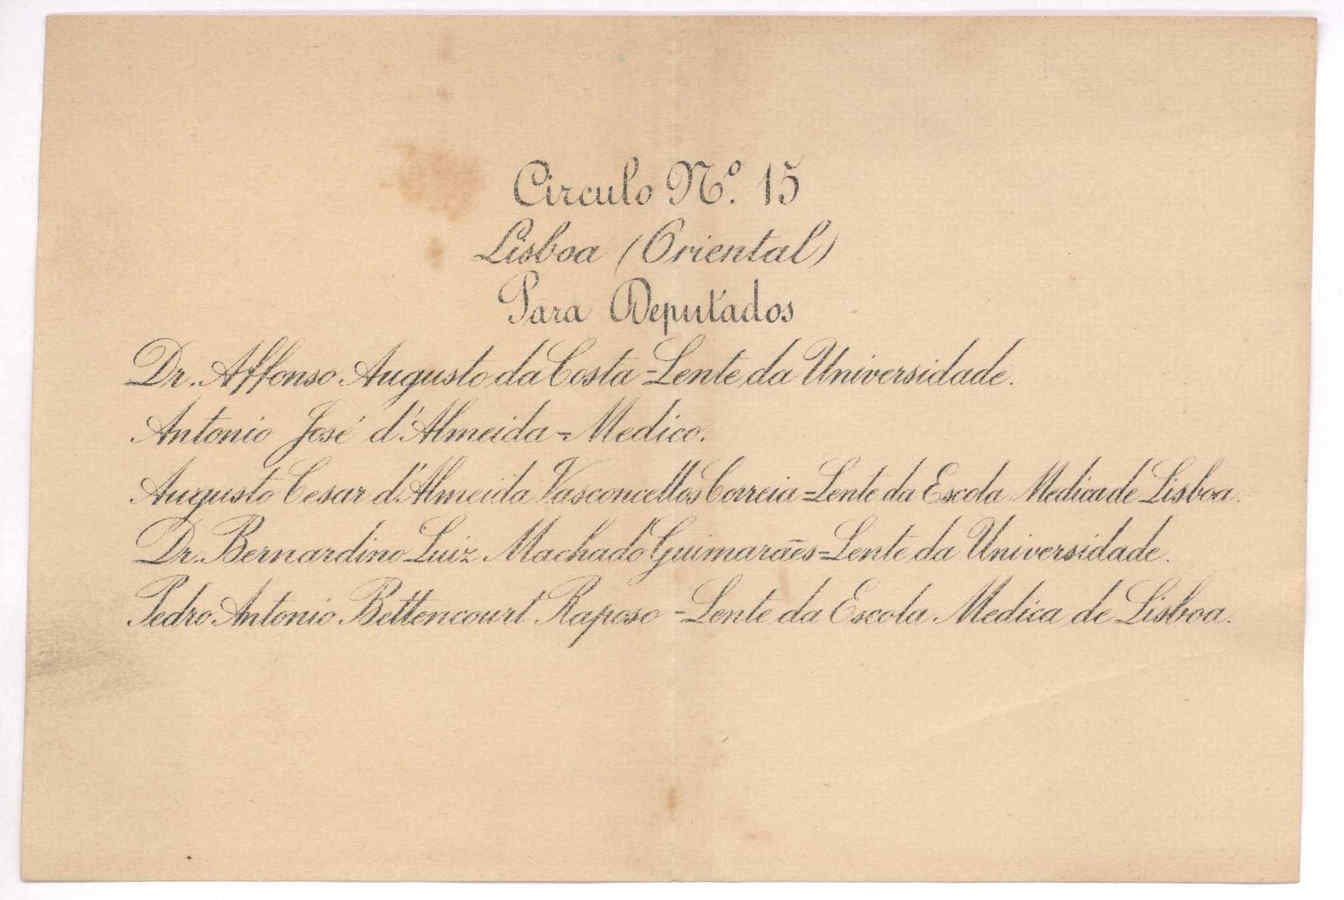 Circulo Nº. 15
Lisboa (Oriental)
Para Deputados
Dr. Affonso Augusto da Costa - Lente da Universidade.
Antonio José d'Almeida = Medico.
Augusto Cesar d'Almeida Vasconcellos Correia = Lente da Escola Medica de Lisboa.
Dr. Bernardino Luiz Machado Guimarães = Lente da Universidade.
Pedro Antonio Bettencourt Raposo - Lente da Escola Medica de Lisboa.